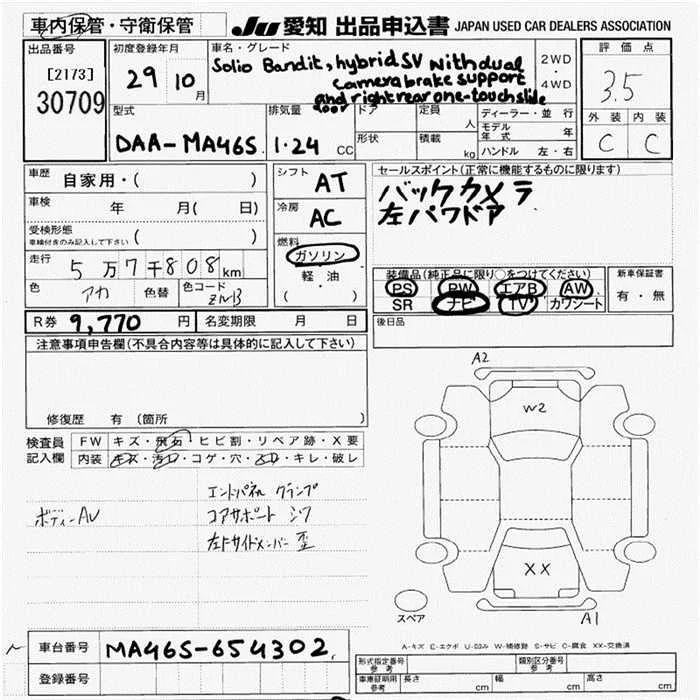 車内保管・守衛保管
JU 愛知 出品申込書 JAPAN USED CAR DEALERS ASSOCIATION
出品番号
[2173]
30709
初度登録年月
29 10 月
車名・グレード
Solio Bandit, hybrid SV with dual
camera brake support
and right rear one-touch slide
door
2WD
・
4WD
評価点
3.5
外装 内装
C C
型式
DAA-MA46S
排気量
1.24 CC
ドア
形状
定員
人
積載
kg
ディーラー・並行
モデル
年式 年
ハンドル 左・右
車歴
自家用・( )
車検
年 月( 日)
受検形態
車検付きのみ記入して下さい ( )
走行
5万7千808km
色
アカ 色替
色コード
ZNB
シフト
AT
冷房
AC
燃料
ガソリン
軽・油
( )
セールスポイント(正常に機能するものに限ります)
バックカメラ
左パワドア
装備品(純正品に限り○をつけてください)
PS PW エアB AW
SR ナビ TV カワシート
新車保証書
有・無
後日品
R券 9,770 円 名変期限 月 日
注意事項申告欄(不具合内容等は具体的に記入して下さい)
修復歴 有 (箇所 )
検査員
記入欄
FW キズ・飛石・ヒビ割・リペア跡・X要
内装 キズ・汚れ・コゲ・穴・スレ・キレ・破レ
エンドパネル クランプ
ボディーAU
コアサポート シワ
左トサイドメンバー 歪
A2
W2
XX
スペア
A1
A-キズ E-エクボ U-凹み W-補修跡 S-サビ C-腐食 XX-交換済
車台番号 MA46S-654302
登録番号
形式指定番号
参考
類別区分番号
参考
車庫証明用
参考
長さ cm 幅 cm 高さ cm